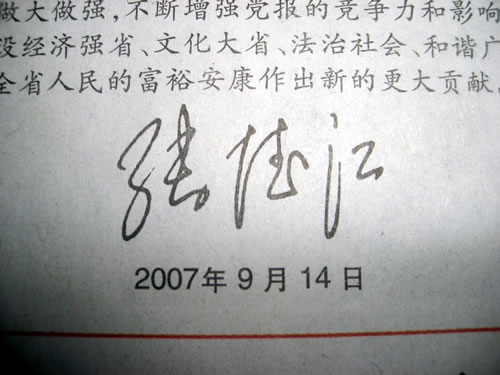 做大做强,不断增强党报的竞争力和影响
设经济强省、文化大省、法治社会、和谐广
全省人民的富裕安康作出新的更大贡献。
张德江
2007年9月14日